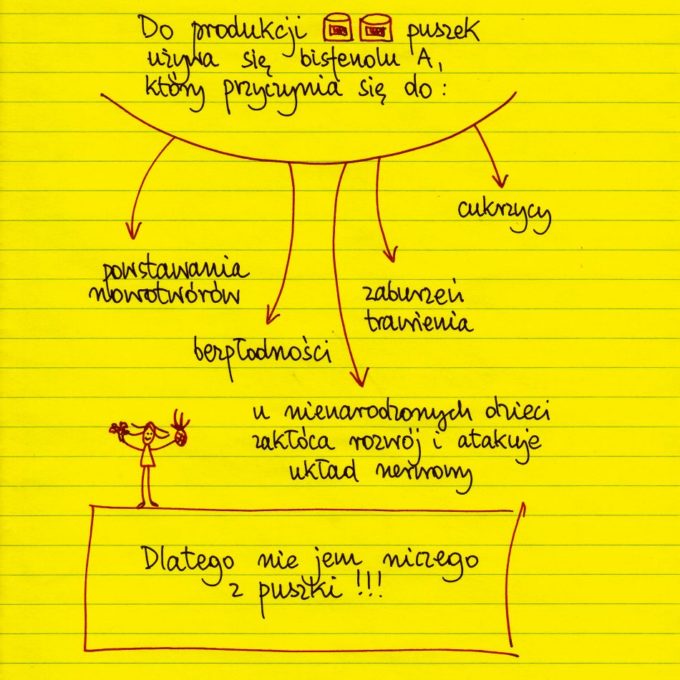 Do produkcji puszek
używa się bisfenolu A,
który przyczynia się do:
cukrzycy
powstawania
nowotworów
zaburzeń
trawienia
bezpłodności
u nienarodzonych dzieci
zakłóca rozwój i atakuje
układ nerwowy
Dlatego nie jem niczego
z puszki !!!